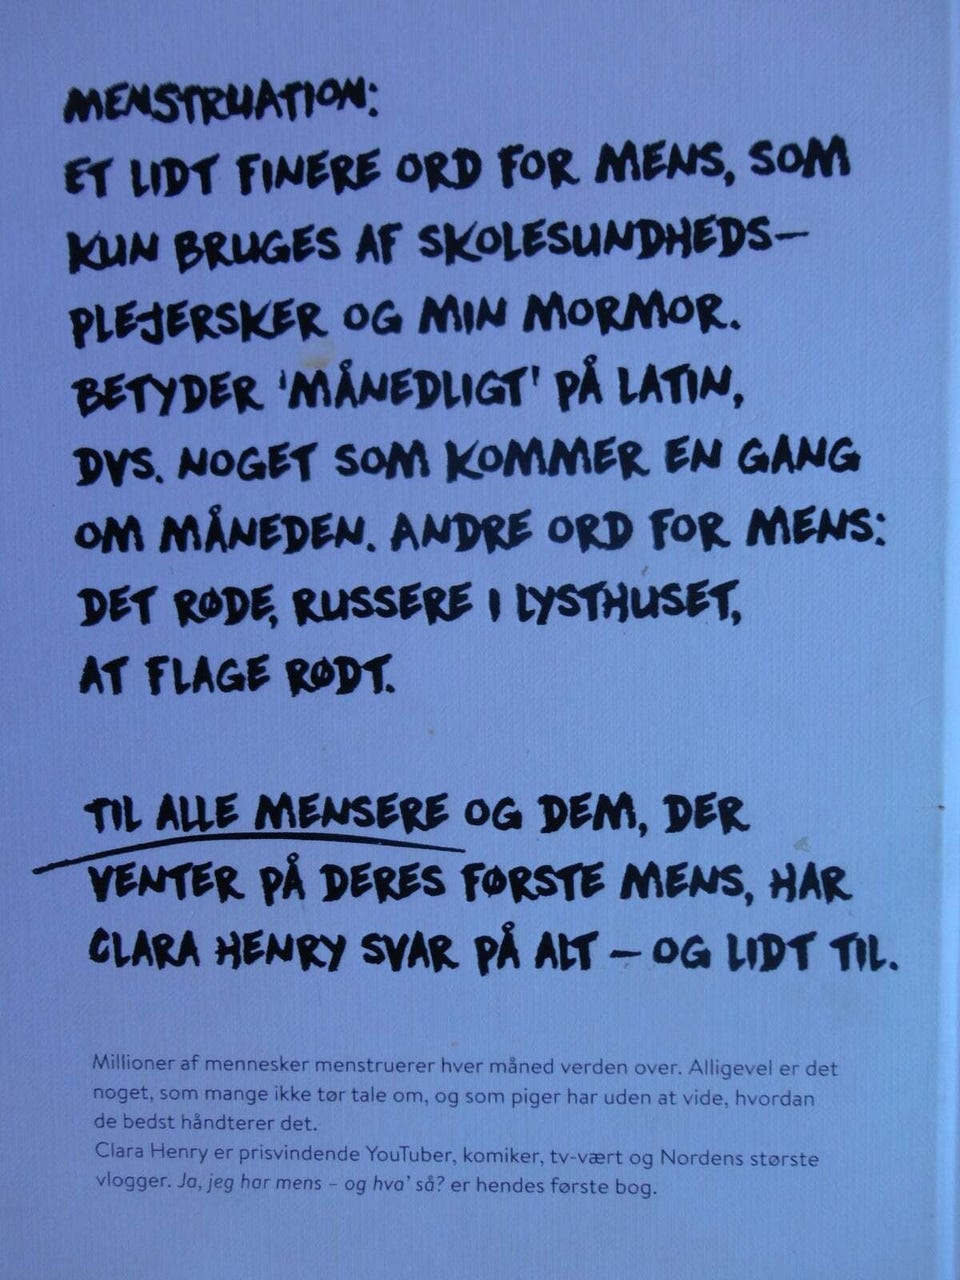 MENSTRUATION:
ET LIDT FINERE ORD FOR MENS, SOM
KUN BRUGES AF SKOLESUNDHEDS–
PLEJERSKER OG MIN MORMOR.
BETYDER 'MÅNEDLIGT' PÅ LATIN,
DVS. NOGET SOM KOMMER EN GANG
OM MÅNEDEN. ANDRE ORD FOR MENS:
DET RØDE, RUSSERE I LYSTHUSET,
AT FLAGE RØDT.
TIL ALLE MENSERE OG DEM, DER
VENTER PÅ DERES FØRSTE MENS, HAR
CLARA HENRY SVAR PÅ ALT – OG LIDT TIL.
Millioner af mennesker menstruerer hver måned verden over. Alligevel er det
noget, som mange ikke tør tale om, og som piger har uden at vide, hvordan
de bedst håndterer det.
Clara Henry er prisvindende YouTuber, komiker, tv-vært og Nordens største
vlogger. Ja, jeg har mens – og hva' så? er hendes første bog.